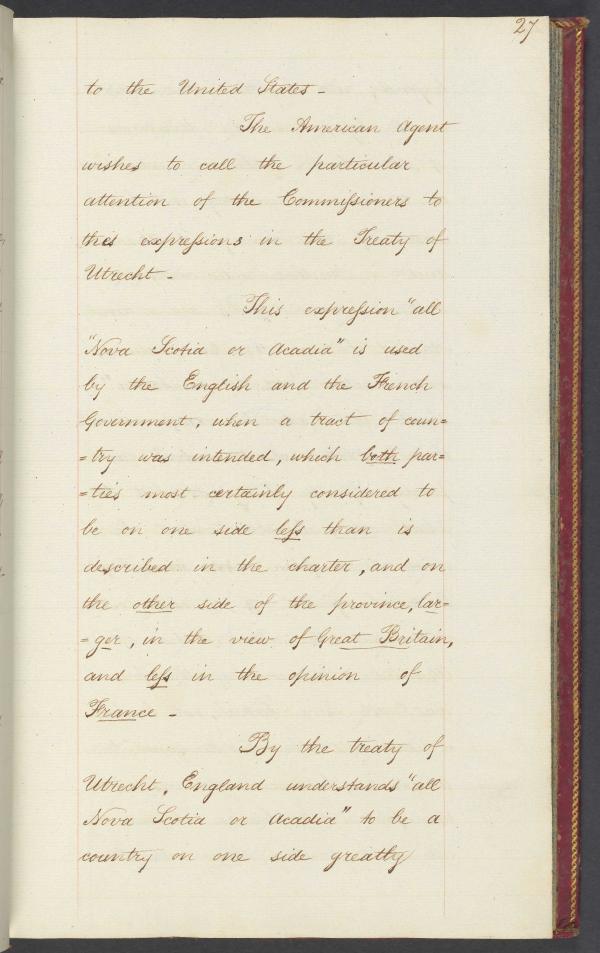 27
to the United States -
The American Agent
wishes to call the particular
attention of the Commiſsioners to
this expreſsions in the Treaty of
Utrecht -
This expreſsion "all
"Nova Scotia or Acadia" is used
by the English and the French
Government, when a tract of coun=
=try was intended, which both par=
=ties most certainly considered to
be on one side leſs than is
described in the charter, and on
the other side of the province, lar=
=ger, in the view of Great Britain,
and leſs in the opinion of
France -
By the treaty of
Utrecht, England understands "all
Nova Scotia or Acadia" to be a
country on one side greatly